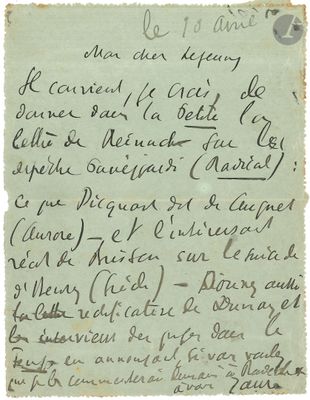 le 10 avril
Mon cher Lejeune
Il convient, je crois, de
donner dans la Petite la
lettre de Reinach sur les
dépêche Panizzardi (Radical) :
ce que Picquart dit de Cuignet
(Aurore) – et l'intéressant
récit de Brisson sur le suicide
d'Henry (Siècle) – Donnez aussi
la lettre rectificative de Dupuy et
les interviews des juges dans le
en annonçant, si vous voulez
que je les commenterai demain
à vous Jaurès